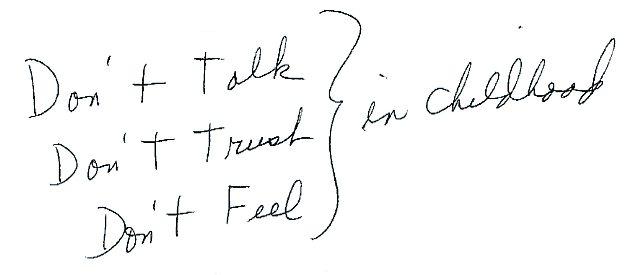 Don't Talk
Don't Trust
Don't Feel
in childhood